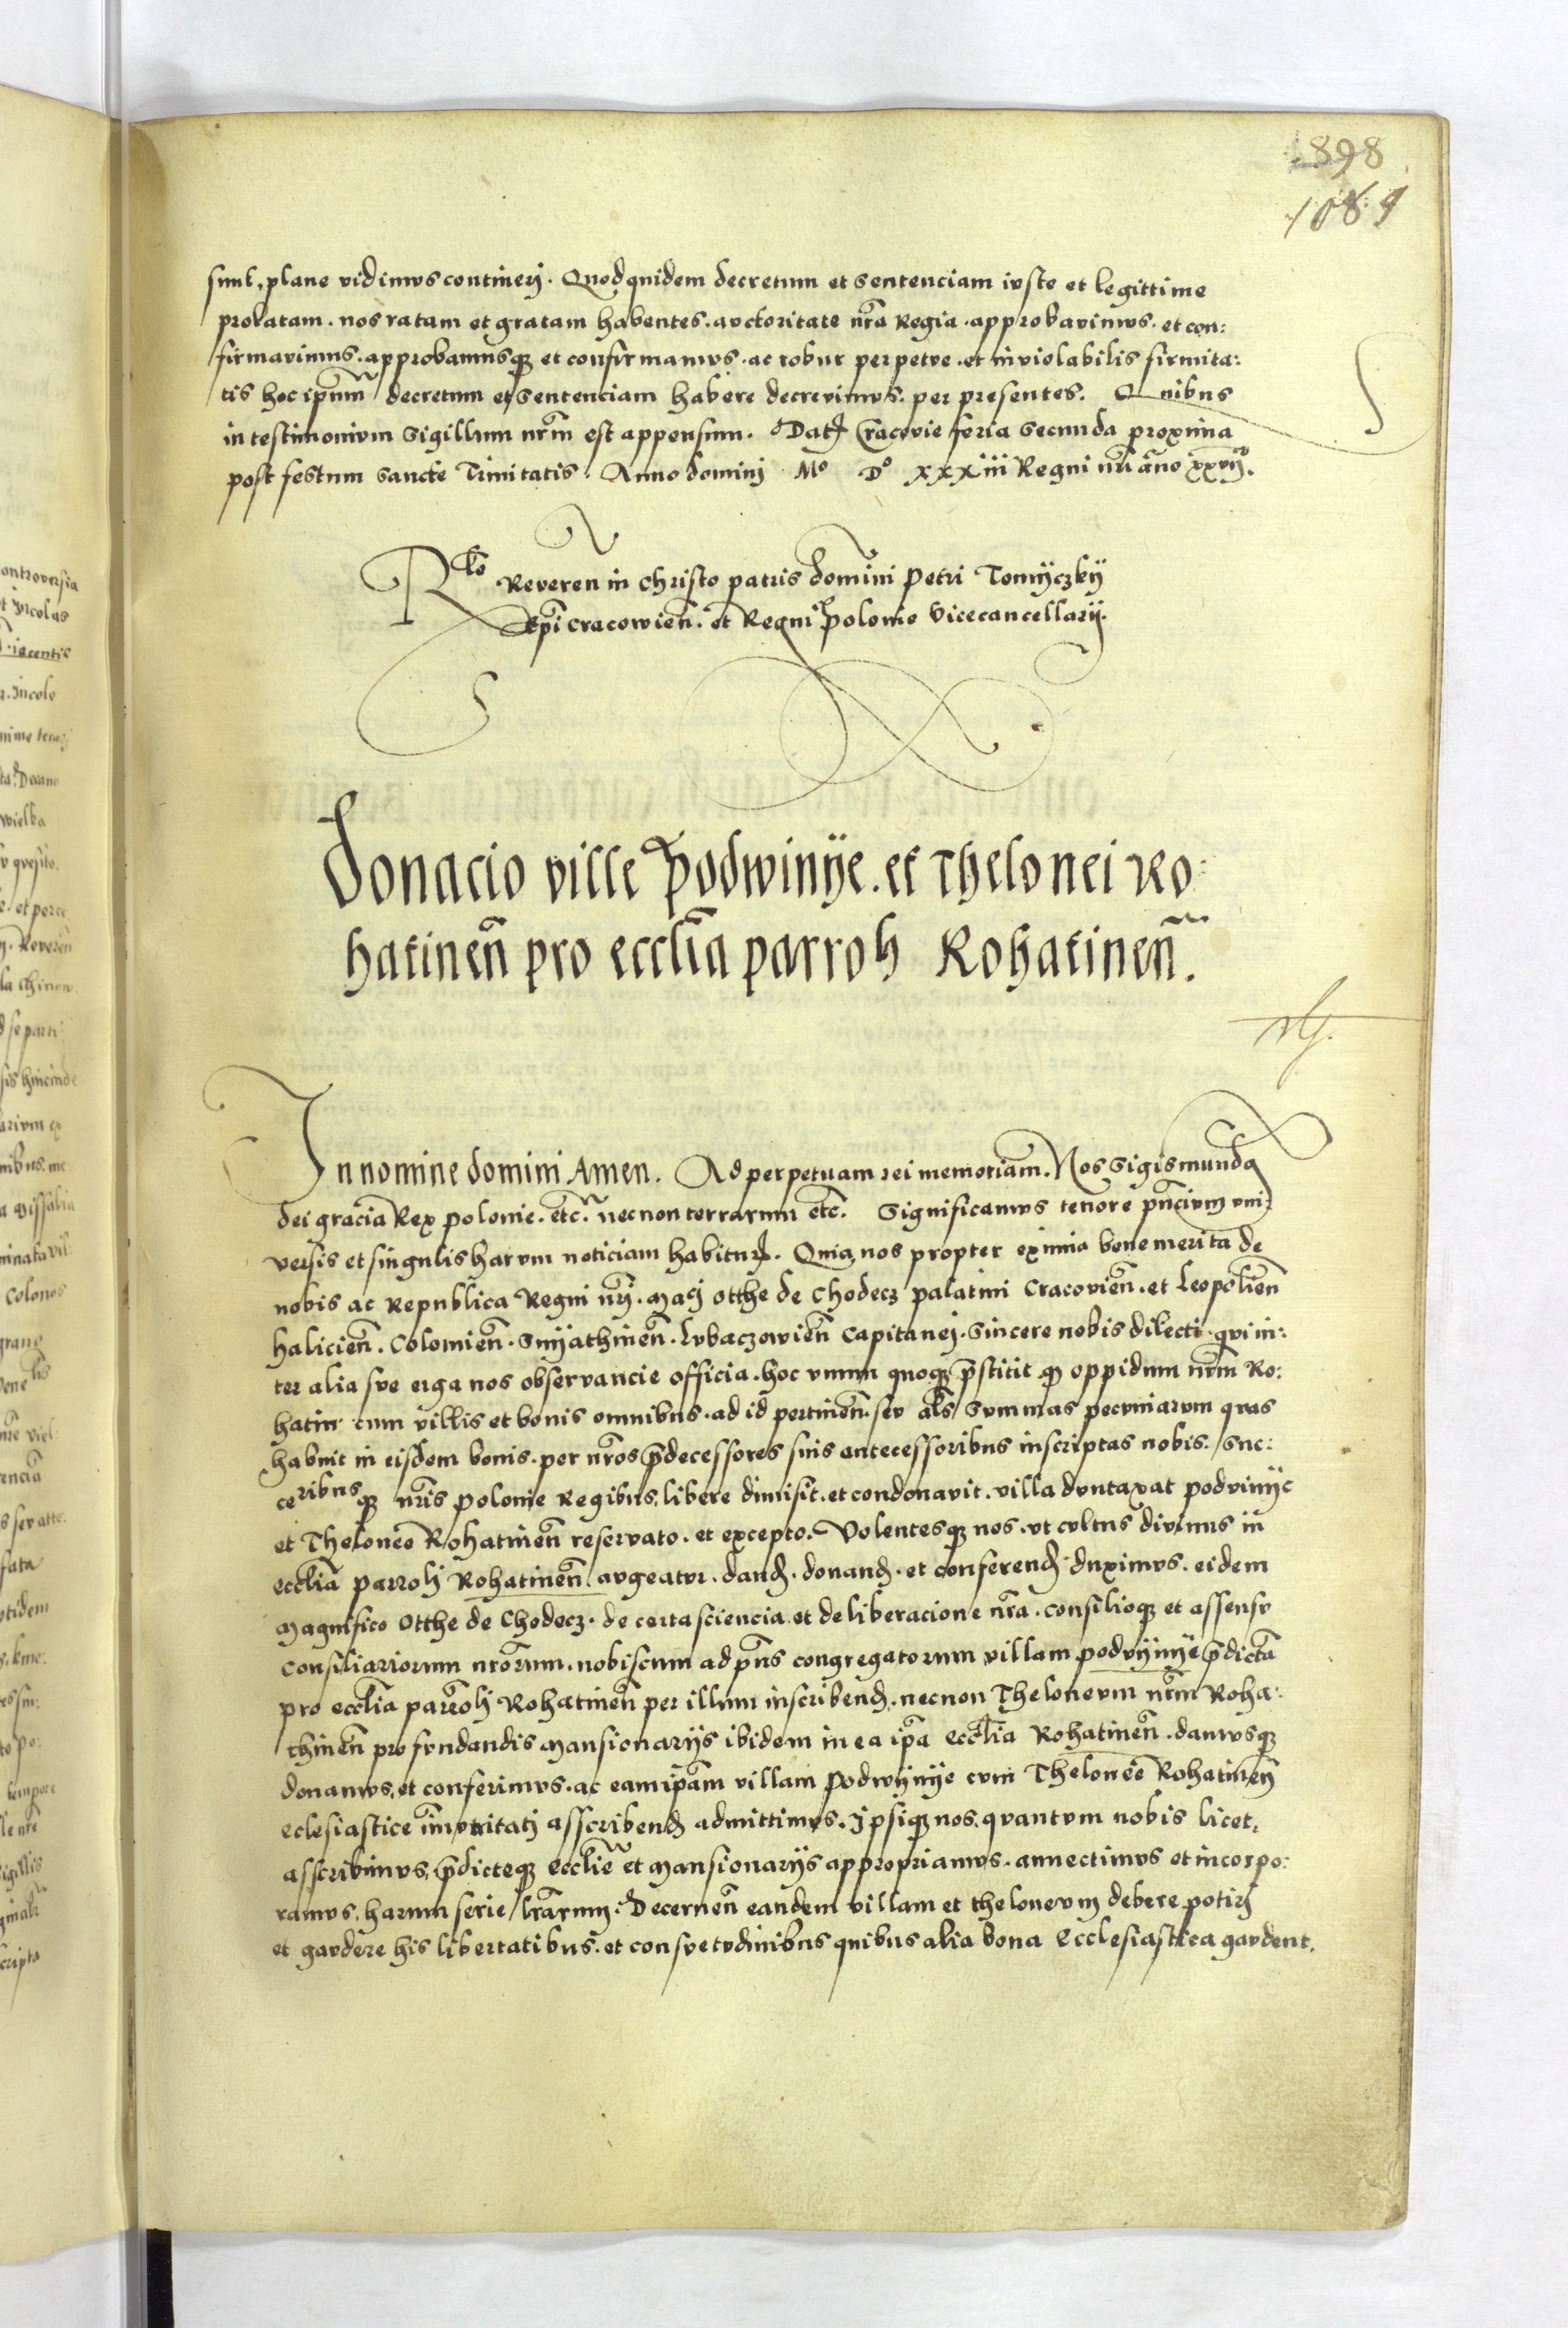 898
1089
sunt, plane vidimus contineri. Quod quidem decretum et sentenciam iuste et legittime
prolatam. nos ratam et gratam habentes. auctoritate nr̃a Regia. approbavimus. et con:
firmavimus. approbamusqꝫ et confirmamus. ac robur perpetue. et inviolabilis firmita:
tis hoc ip̃um decretum et sentenciam habere decrevimus. per presentes. Quibus
in testimonium Sigillum nr̃m est appensum. Datꝭ Cracovie feria Secunda proxima
post festum Sancte Trinitatis. Anno dominj Mº Dº xxxiii Regni nr̃i año xxvijº.
Rlo Reveren in christo patris domini Petri Tomyczky
Ep̃i cracovien̄. et Regni polonie Vicecancellarij.
Donacio ville podwinÿe. et Thelonei Ro:
hatineñ pro eccl̃ia parroh Rohatineñ.
In nomine domini Amen. Ad perpetuam rei memoriam. Nos Sigismundꝰ
dei gracia Rex polonie. etc. necnon terrarum etc. Significamus tenore pñcium vni:
versis et singulis harum noticiam habiturꝭ. Quia nos propter eximia bene merita de
nobis ac Republica Regni nr̃j. Macj Otthe de Chodecz palatini Cracovieñ. et Leopolieñ
halicieñ. Colomieñ. Snyathineñ. Lubaczovieñ Capitanej. Sincere nobis dilecti. qui in:
ter alia sue erga nos observancie officia. hoc vnum quoqꝫ p̃stitit qꝫ oppidum nr̃m Ro:
hatin cum villis et bonis omnibus. ad id pertineñ. seu al̃s Summas pecuniarum quas
habuit in eisdem bonis. per nr̃os p̃decessores suis antecessoribus inscriptas nobis. suc:
ceribusqꝫ nr̃is polonie Regibus, libere dimisit. et condonavit. villa duntaxat podvinÿe
et Theloneo Rohatineñ reservato. et excepto. Volentesqꝫ nos. vt cultus divinus in
eccl̃ia parroh Rohatineñ augeatur. dandꝭ. donandꝭ. et conferendꝭ duximus. eidem
Magnifico Otthe de Chodecz. de certa sciencia et deliberacione nr̃a. consilioqꝫ et assensu
Consiliariorum nr̃orum. nobiscum ad pñs congregatorum villam podvÿnÿe p̃dictã
pro eccl̃ia parroh Rohatineñ per illum inscribendꝭ. necnon Theloneum nr̃m Roha:
thineñ pro fundandis Mansionarijs ibidem in ea ip̃a eccl̃ia Rohatineñ. damusqꝫ
donamus. et conferimus. ac eam ip̃am villam Podwÿnÿe cum Theloneo Rohatineñ
eclesiastice im̃unitatj asscribendꝭ admittimus. Ipsiqꝫ nos, quantum nobis licet,
asscribimus, p̃dicteqꝫ eccl̃ie et Mansionarijs appropriamus. annectimus et incorpo:
ramus. harum serie lr̃arum. Decerneñ eandem villam et theloneum debere potirj
et gaudere his libertatibus. et consuetudinibus quibus alia bona Ecclesiastica gaudent.